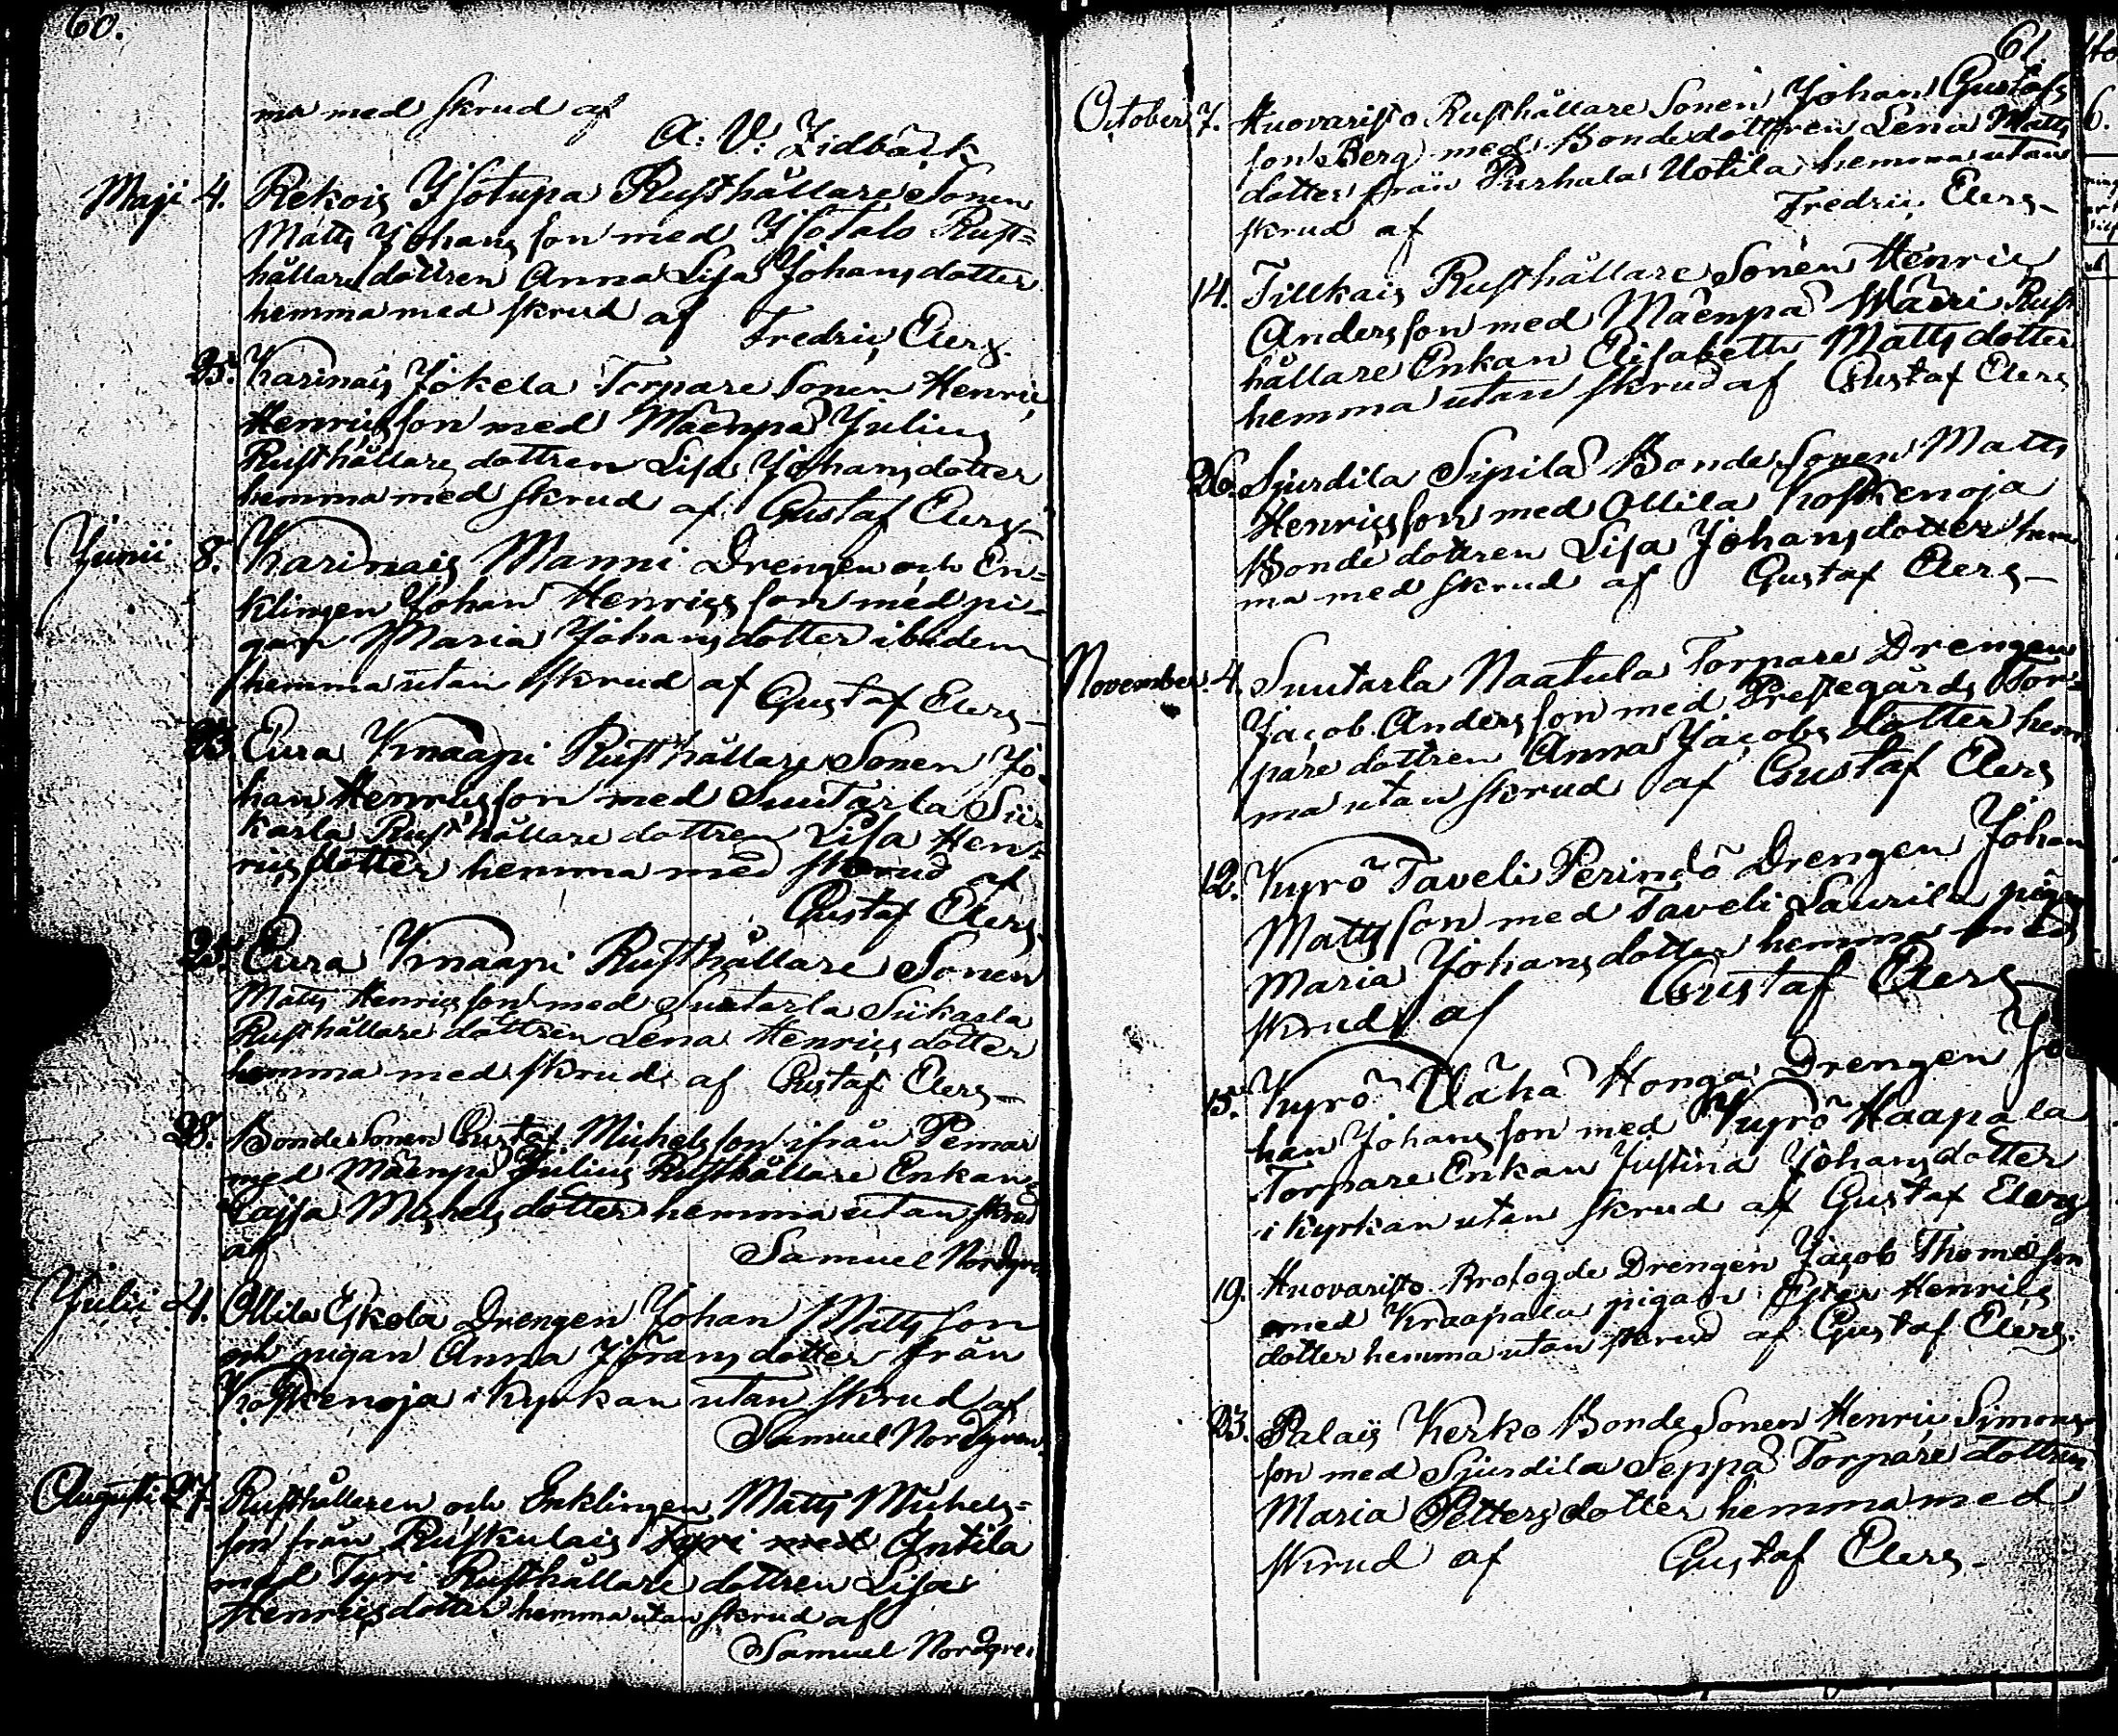 60.
ma med skrud af
A: V: Lidbäck
Maji 4. Rekois Isotupa Rusthållare Sonen
Matts Johansson med Isotalo Rust=
hållare dottren Anna Lisa Johansdotter
hemma med skrud af Fredric Elers.
25. Karinais Jokela Torpare Sonen Henric
Henricsson med Mäenpä Julius
Rusthållare dottren Lisa Johansdotter
hemma med skrud af Gustaf Elers
Junii 8. Karinais Manni Drengen och En=
klingen Johan Henricsson med pi=
gan Maria Johansdotter ibidem
hemma utan skrud af
Gustaf Elers
23. Eura Knaapi Rusthållare Sonen Jo=
han Henricsson med Suutarla Sii=
karla Rusthållare dottren Lisa Hen=
ricsdotter hemma med skrud af
Gustaf Elers.
25. Eura Knaapi Rusthållare Sonen
Matts Henricsson med Suutarla Siikarla
Rusthållare dottren Lena Henricsdotter
hemma med skrud af Gustaf Elers
28. Bonde Sonen Gustaf Michelsson ifrån Pemar
med Mäenpä Julius Rusthållare Enkan
Caisa Michelsdotter hemma utan skrud
af Samuel Nordgren
Julii 4. Ollila Eskola Drengen Johan Mattsson
och pigan Anna Jöransdotter från
Koskenoja i kyrkan utan skrud af
Samuel Nordgren.
Augusti 27. Rusthållaren och Enklingen Matts Michels=
son från Ruskulais Tyri med Antila
med Tyri Rusthållare dottren Lisa
Henricsdotter hemma utan skrud af
Samuel Nordgren
61.
October 7. Huovaristo Rusthållare Sonen Johan Gustafs
son Berg med Bondedottren Lena Matts
dotter från Purhala Uotila hemma utan
skrud af Fredric Elers
14. Tillkais Rusthållare Sonen Henric
Andersson med Mäenpä Wäri Rust
hållare Enkan Elisabeth Mattsdotter
hemma utan skrud af Gustaf Elers
26. Sjurdila Sipilä Bonde Sonen Matts
Henricsson med Ollila Koskenoja
Bonde dottren Lisa Johansdotter hem
ma med skrud af Gustaf Elers
November. 4. Suutarla Naatula Torpare Drengen
Jacob Andersson med Prestegårds Tor=
pare dottren Anna Jacobs dotter hem
ma utan skrud af Gustaf Elers
12. Kyrö Taveli Perindö Drengen Johan
Mattsson med Taveli Laurila pigan
Maria Johansdotter hemma med
skrud af Gustaf Elers
15. Kyrö Vähä Honga Drengen Jo
han Johansson med Kyrö Haapala
Torpare Enkan Justina Johansdotter
i kyrkan utan skrud af Gustaf Elers
19. Huovaristo Drengen Jacob Thomasson
med Knaapala pigan Ester Henrics
dotter hemma utan skrud af Gustaf Elers.
23. Palais Kerko Bonde Sonen Henric Simons
son med Sjurdila Seppä Torpare dottren
Maria Pettersdotter hemma med
skrud af Gustaf Elers.